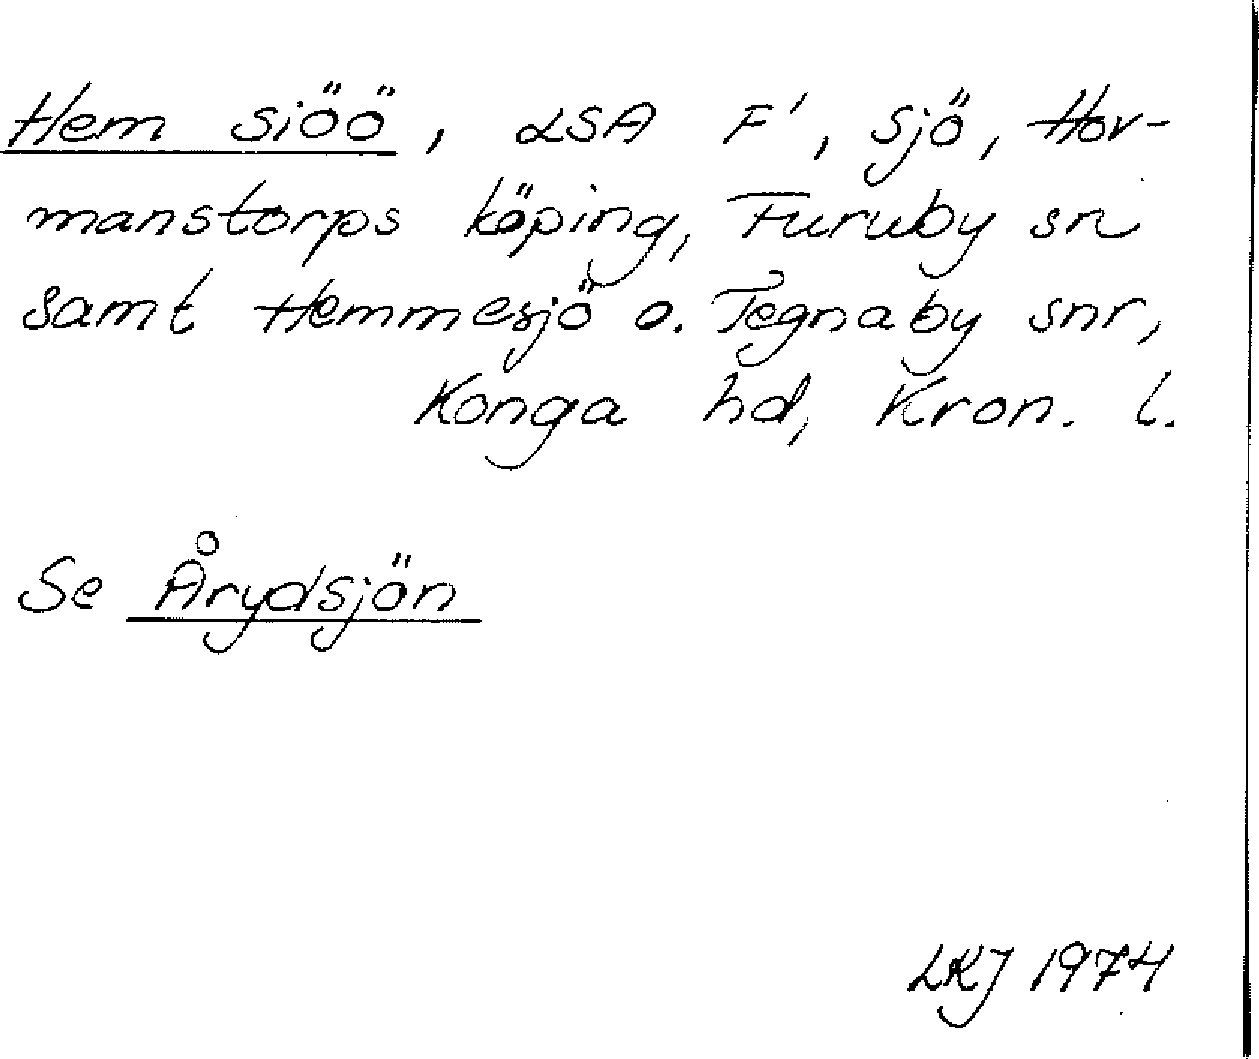 Hem siöö, LSA F', sjö, Hor-
manstorps köping, Furuby sn
samt Hemmesjö o. Tegnaby snr,
Konga hd, Kron. l.
Se Årydsjön
LKJ 1974